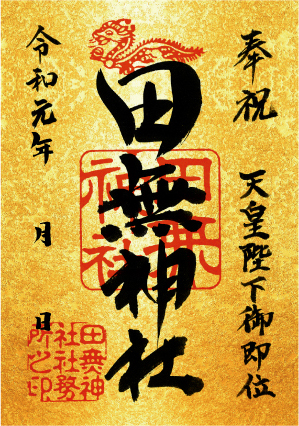 奉祝 天皇陛下御即位
田無神社
令和元年 月 日
田無神社
田無神社社務所之印